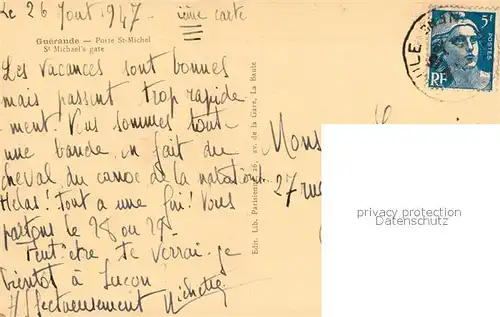 Le 26 Aout 1947 ième carte
Guérande — Porte St-Michel
St Michael's gate
Les vacances sont bonnes
mais passent trop rapide
ment. Nous sommes toute
une bande, on fait du
cheval du canoe de la natation.
Hélas! Tout a une fin! Nous
partons le 28 ou 29.
Peut-être te verrai-je
bientôt à Luçon
Affectueusement Michelle
Edit. Lib. Parisienne, 26, av. de la Gare, La Baule
Mons
27 rue
5f
POSTES
RF
privacy protection
www.ansichtskartenversand.com